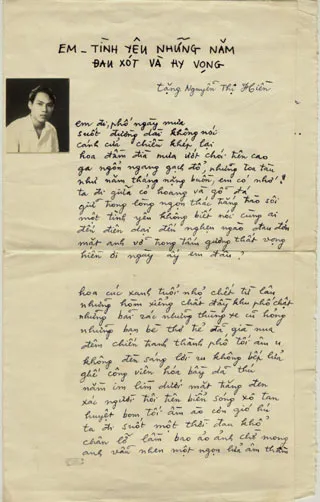 EM _ TÌNH YÊU NHỮNG NĂM
ĐAU XÓT VÀ HY VỌNG
tặng Nguyễn Thị Hiền
em đi, phố ngày mưa
suốt đường dài không nói
cánh cửa chiều khép lại
hoa đầm đìa mưa ướt chói trên cao
ga ngổn ngang gạch đổ, những toa tàu
như năm tháng nặng buồn, em có nhớ?
ta đi giữa cỏ hoang và gỗ đá
giữ trong lòng ngọn thác trắng kêu sôi
một tình yêu không biết nói cùng ai
đến điên dại đến nghẹn ngào đau đớn
mặt anh vỡ trong tấm gương thất vọng
hiên đi ngày ấy em đâu?
hoa cúc xanh tuổi nhỏ chết từ lâu
những hòm xiểng chất đầy khu phố chật
những bãi rác những thùng xe cũ hỏng
những bạn bè thơ trẻ đã già nua
đêm chiến tranh thành phố tối âm u
không đèn sáng lối ru không bếp lửa
ghế công viên hóa bầy đá thú
nằm im lìm dưới mặt trăng đen
xác người trôi trên biển sóng xô lan
huyệt bom tối ầm ào cơn gió hú
ta đi suốt một thời đau khổ
chân lỡ lầm bao ảo ảnh chờ mong
anh vẫn nhen một ngọn lửa âm thầm